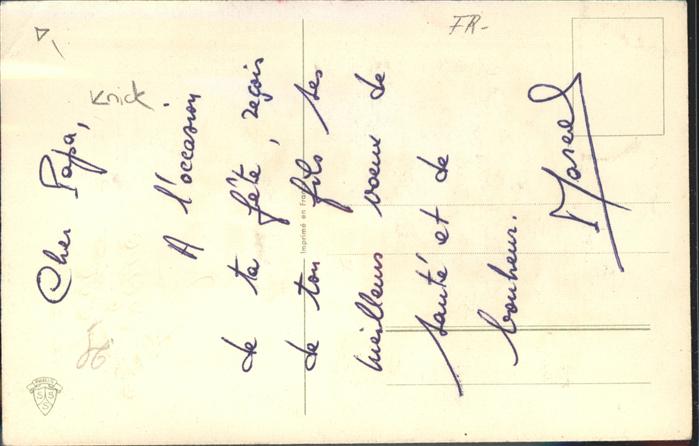 Cher Papa,
A l'occasion
de ta fête, reçois
de ton fils ses
meilleurs voeux de
santé et de
bonheur.
Marcel
Knick
FR-
Imprimé en France